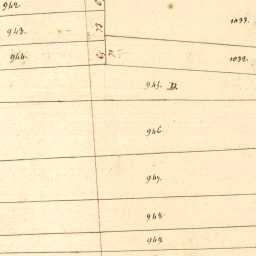 942.
1033.
943.
944.
1032.
945. D.
946.
947.
948.
949.